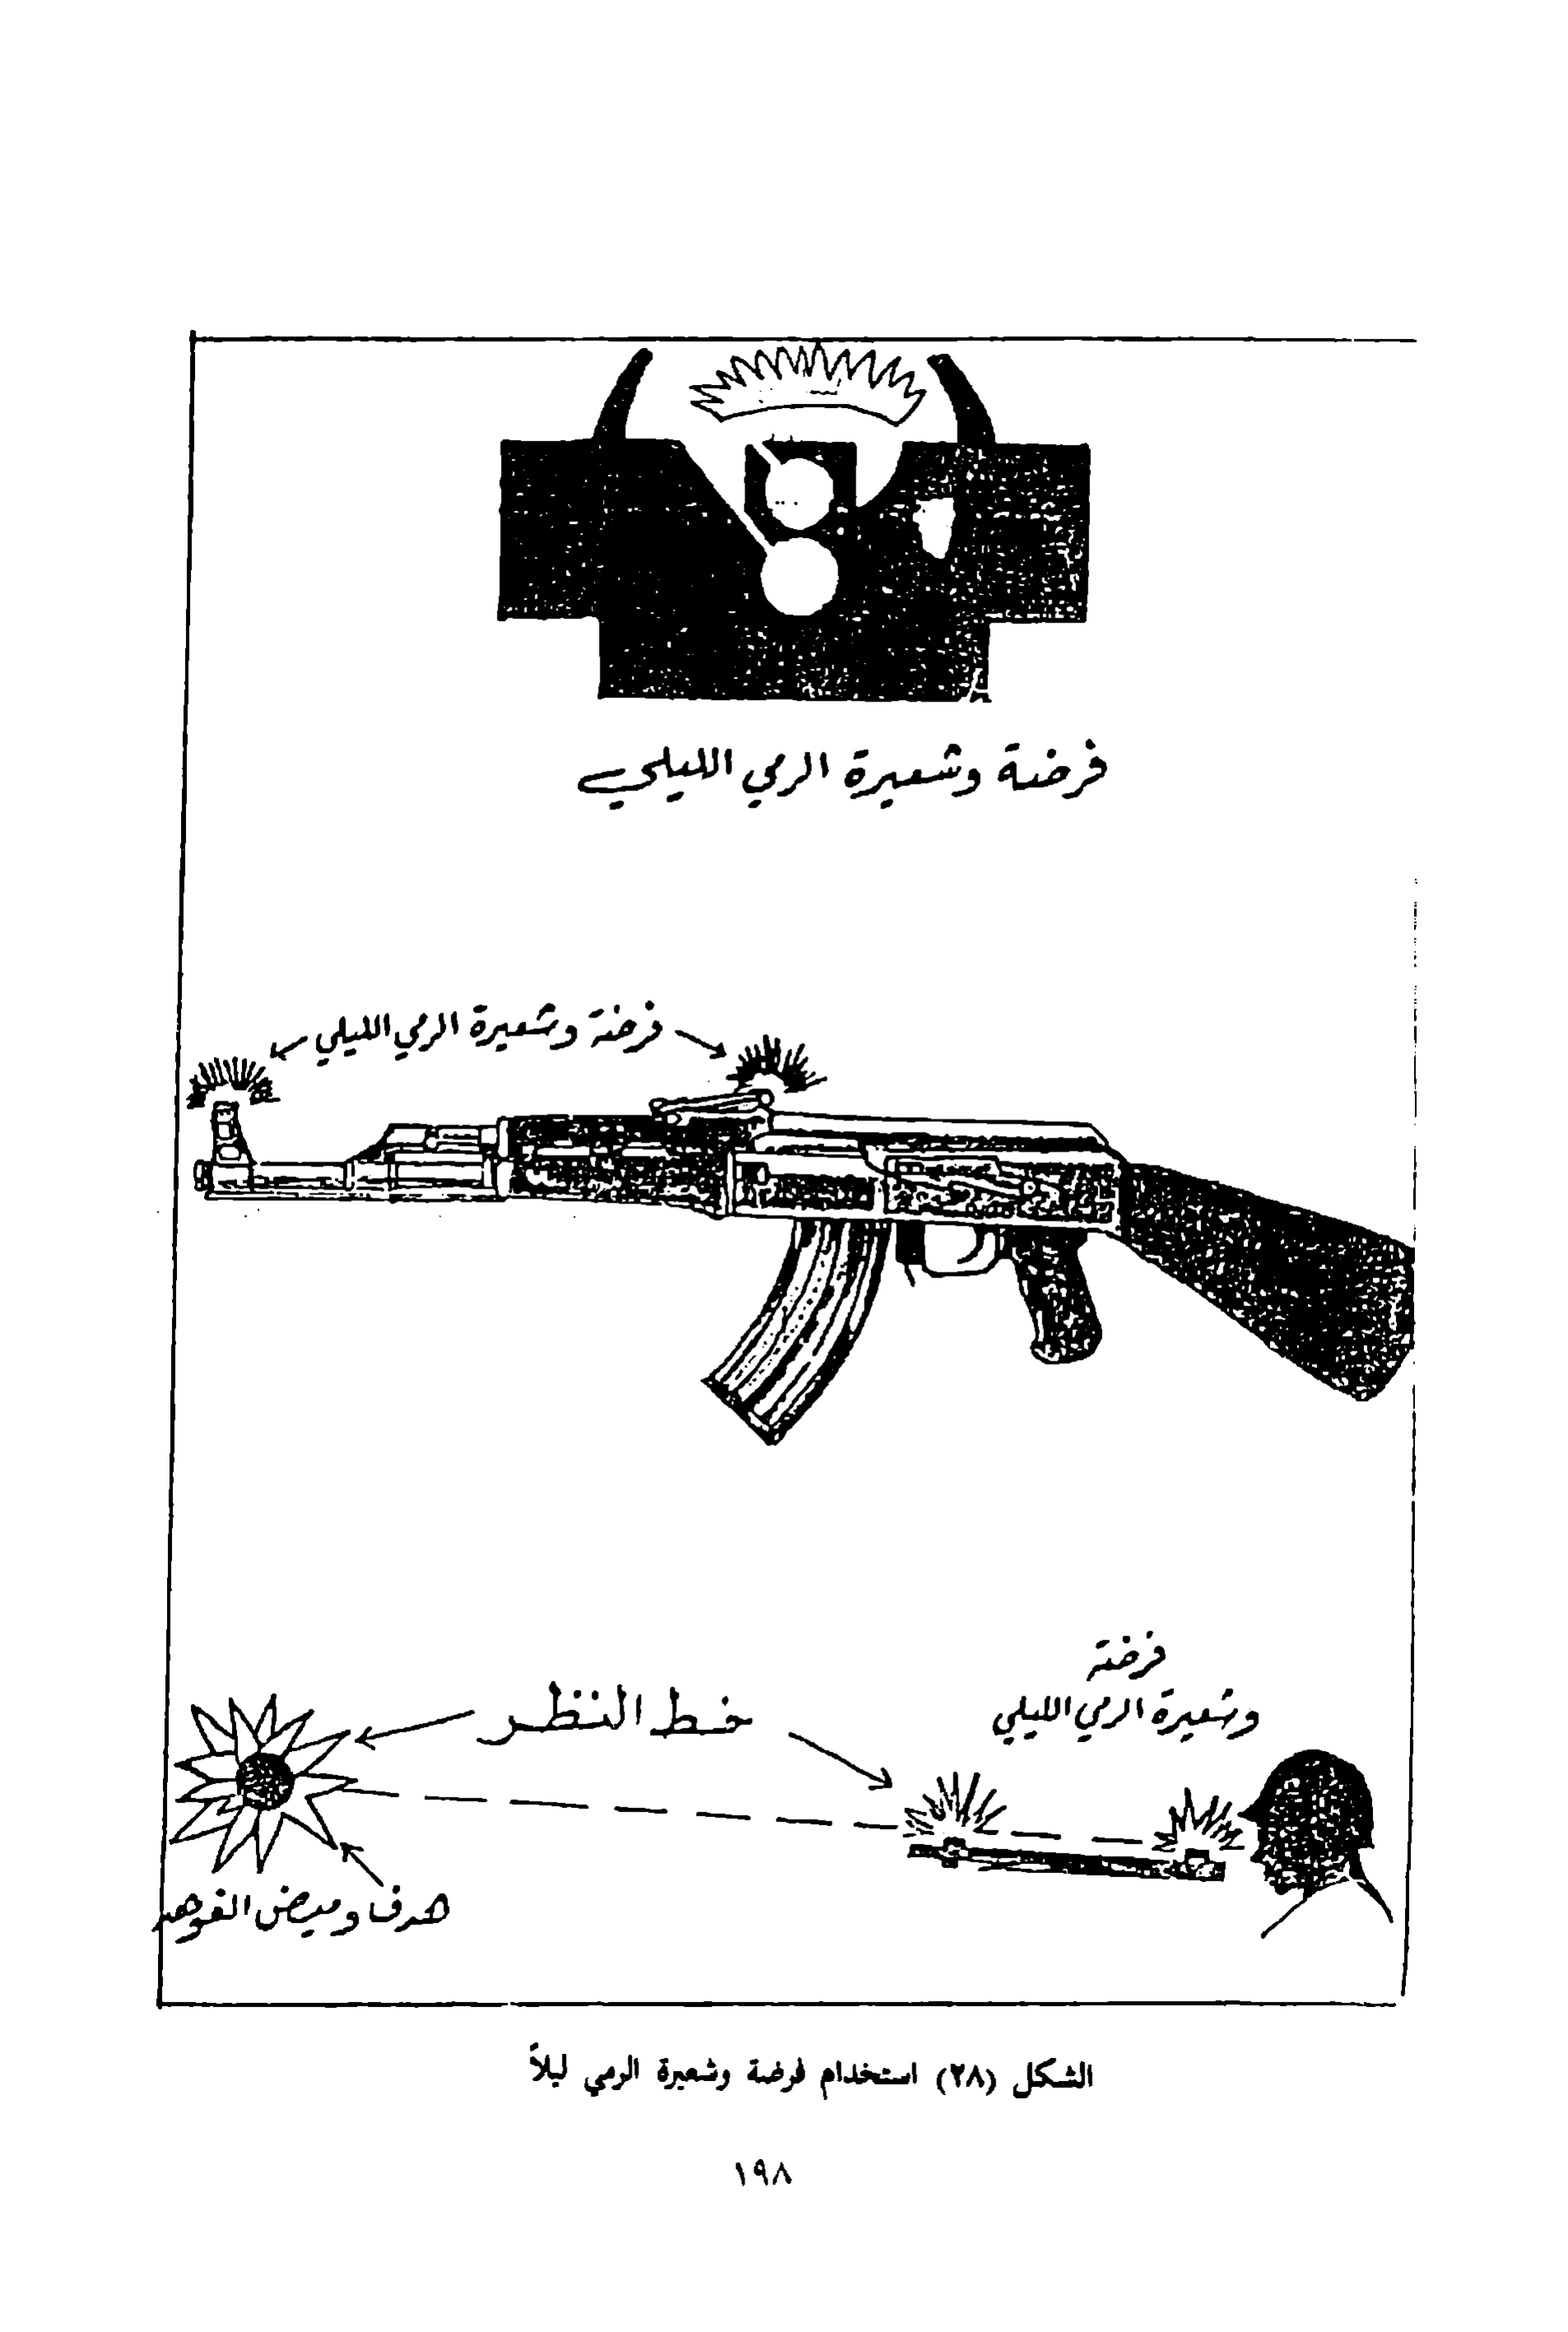 فرضة وشعيرة الرمي الليلي
فرضة وشعيرة الرمي الليلي
فرضة
وشعيرة الرمي الليلي
خط النظر
هدف وميض الفوهه
الشكل (٢٨) استخدام فرضة وشعيرة الرمي ليلاً
١٩٨